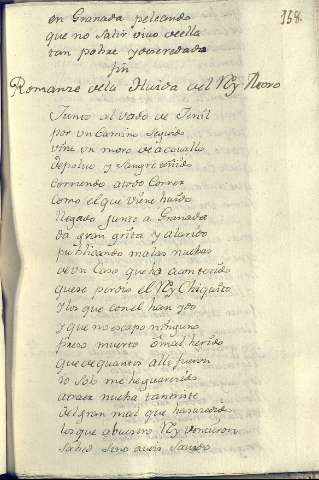 358.
en Granada peleando
que no salir vivo de ella
tan pobre y deseredado
fin
Romanze de la Huida del Rey Moro
Junto al vado de Jenil
por un Camino seguido
viene un moro de a cavallo
de polvo y sangre teñido
corriendo a todo Correr
como el que viene huido
llegado junto a Granada
da gran grita y alarido
publicando malas nuebas
de un Caso que ha acontecido
que se perdio el Rey Chiquito
y los que con el han ydo
y que no escapo ninguno
preso muerto o mal herido
que de quantos alli fueron
yo solo me he guarecido
a traer nueba tan triste
del gran mal que ha sucedido
los que a vuestro Rey vencieron
sabed si no aveis savido